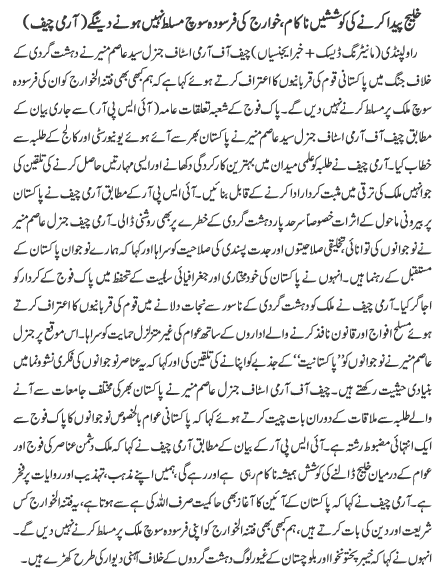 خلیج پیدا کرنے کی کوششیں ناکام، خوارج کی فرسودہ سوچ مسلط نہیں ہونے دینگے (آرمی چیف)
راولپنڈی (مانیٹرنگ ڈیسک + خبر ایجنسیاں) چیف آف آرمی اسٹاف جنرل سید عاصم منیر نے دہشت گردی کے
خلاف جنگ میں پاکستانی قوم کی قربانیوں کا اعتراف کرتے ہوئے کہا ہے کہ ہم کبھی بھی فتنہ الخوارج کو ان کی
فرسودہ سوچ ملک پر مسلط کرنے نہیں دیں گے۔ پاک فوج کے شعبہ تعلقات عامہ (آئی ایس پی آر) سے جاری بیان کے
مطابق چیف آف آرمی اسٹاف جنرل سید عاصم منیر نے پاکستان بھر سے آئے ہوئے یونیورسٹی اور کالج کے طلبہ سے
خطاب کیا۔ آرمی چیف نے طلبہ کو علمی میدان میں بہترین کارکردگی دکھانے اور ایسی مہارتیں حاصل کرنے کی تلقین کی
جو انہیں ملک کی ترقی میں مثبت کردار ادا کرنے کے قابل بنائیں۔ آئی ایس پی آر کے مطابق آرمی چیف نے پاکستان
پر بیرونی ماحول کے اثرات خصوصاً سرحد پار دہشت گردی کے خطرے پر بھی روشنی ڈالی۔ آرمی چیف جنرل عاصم منیر
نے نوجوانوں کی توانائی، تخلیقی صلاحیتوں اور جدت پسندی کی صلاحیت کو سراہا اور کہا کہ ہمارے نوجوان پاکستان کے
مستقبل کے رہنما ہیں۔ انہوں نے پاکستان کی خودمختاری اور جغرافیائی سالمیت کے تحفظ میں پاک فوج کے کردار کو
اجاگر کیا۔ آرمی چیف نے ملک کو دہشت گردی کے ناسور سے نجات دلانے میں قوم کی قربانیوں کا اعتراف کرتے
ہوئے مسلح افواج اور قانون نافذ کرنے والے اداروں کے ساتھ عوام کی غیر متزلزل حمایت کو سراہا۔ اس موقع پر جنرل
عاصم منیر نے نوجوانوں کو ”پاکستانیت“ کے جذبے کو اپنانے کی تلقین کی اور کہا کہ یہ عناصر نوجوانوں کی فکری نشوونما میں
بنیادی حیثیت رکھتے ہیں۔ چیف آف آرمی اسٹاف جنرل عاصم منیر نے پاکستان بھر کی مختلف جامعات سے آنے
والے طلبہ سے ملاقات کے دوران بات چیت کرتے ہوئے کہا کہ پاکستانی عوام بالخصوص نوجوانوں کا پاک فوج سے
ایک انتہائی مضبوط رشتہ ہے۔ آئی ایس پی آر کے مطابق آرمی چیف نے کہا کہ ملک دشمن عناصر کی فوج اور
عوام کے درمیان خلیج ڈالنے کی کوشش ہمیشہ ناکام رہی ہے اور رہے گی، ہمیں اپنے مذہب، تہذیب اور روایات پر فخر
ہے۔ آرمی چیف نے کہا کہ پاکستان کے آئین کا آغاز بھی حاکمیت صرف اللہ کی ہے سے ہوتا ہے، یہ فتنہ الخوارج کس
شریعت اور دین کی بات کرتے ہیں، ہم کبھی بھی فتنہ الخوارج کو اپنی فرسودہ سوچ ملک پر مسلط کرنے نہیں دیں گے۔
انہوں نے کہا کہ خیبر پختونخوا اور بلوچستان کے غیور لوگ دہشت گردوں کے خلاف آہنی دیوار کی طرح کھڑے ہیں۔